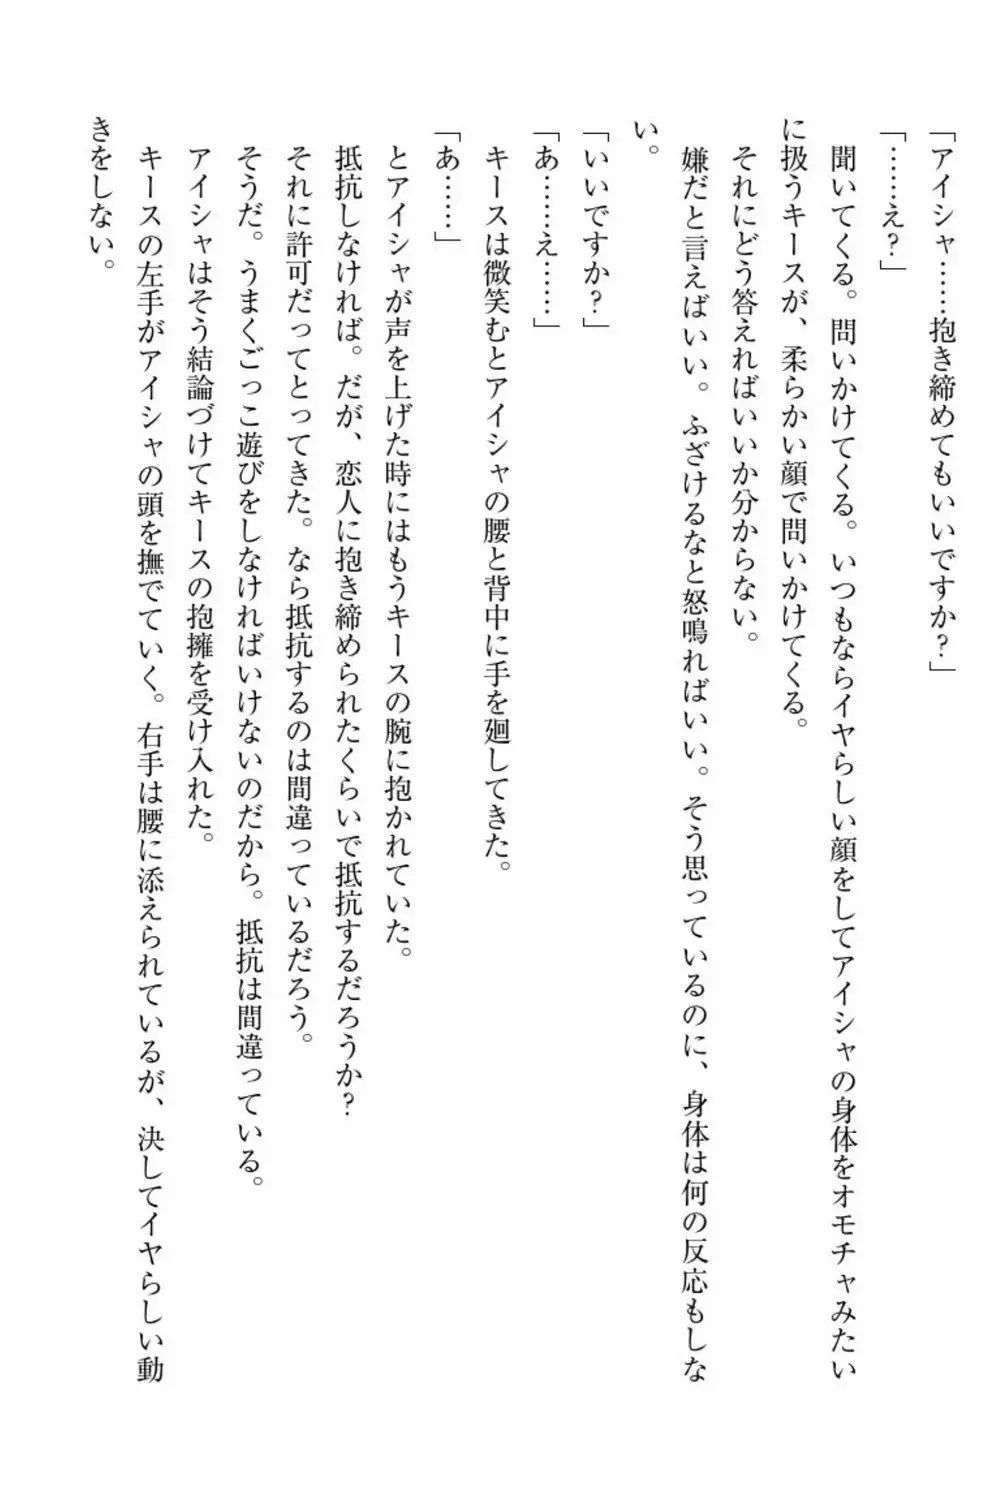 「アイシャ……抱き締めてもいいですか？」
「……え？」
　聞いてくる。問いかけてくる。いつもならイヤらしい顔をしてアイシャの身体をオモチャみたい
に扱うキースが、柔らかい顔で問いかけてくる。
　それにどう答えればいいか分からない。
　嫌だと言えばいい。ふざけるなと怒鳴ればいい。そう思っているのに、身体は何の反応もしな
い。
「いいですか？」
「あ……え……」
　キースは微笑むとアイシャの腰と背中に手を廻してきた。
「あ……」
　とアイシャが声を上げた時にはもうキースの腕に抱かれていた。
　抵抗しなければ。だが、恋人に抱き締められたくらいで抵抗するだろうか？
　それに許可だってとってきた。なら抵抗するのは間違っているだろう。
　そうだ。うまくごっこ遊びをしなければいけないのだから。抵抗は間違っている。
　アイシャはそう結論づけてキースの抱擁を受け入れた。
　キースの左手がアイシャの頭を撫でていく。右手は腰に添えられているが、決してイヤらしい動
きをしない。